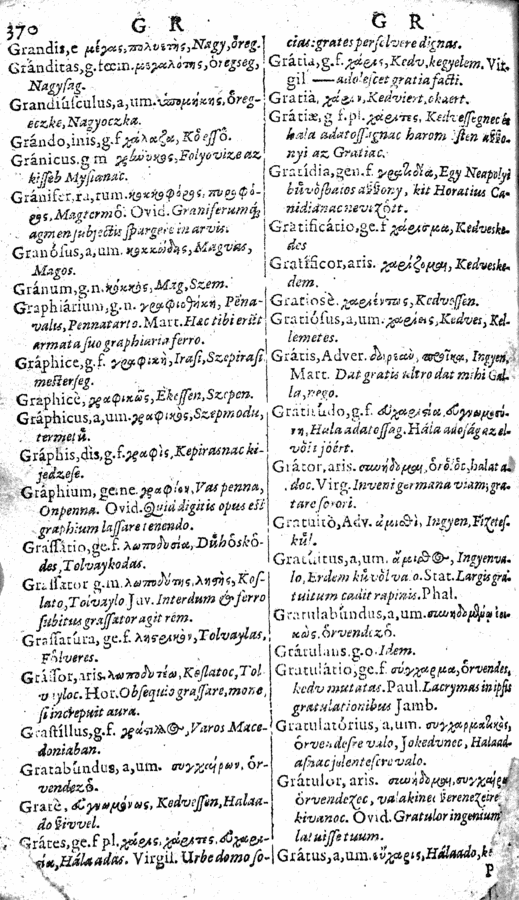 370 G R
Grandis, e μέγας, πολυετὴς, Nagy, öreg.
Gránditas, g. fœm. μεγαλότης, öregseg,
Nagysag.
Grandiúsculus, a, um. öreg-
eczke, Nagyoczka.
Grándo, inis, g. f χάλαζα, Kö essö.
Gránicus. g m Folyovize az
kisseb Mysianac.
Gránifer, ra, rum.
Magtermö. Ovid. Graniferumq;
agmen subjectis spargere in arvis.
Granósus, a, um. κοκκώδης, Magvas,
Magos.
Gránum, g. n. κόκκος, Mag, Szem.
Graphiárium, g. n. γραφιοθήκη, Pena-
valus, Pennatarto. Mart. Hac tibi erūt
armata suo graphiaria ferro.
Gráphice, g. f. γραφικὴ, Irasi, Szepirasi
mesterseg.
Graphicè, γραφικῶς, Ekessen, Szepen.
Gráphicus, a, um. γραφικὸς, Szepmodu,
termetü.
Gráphis, dis, g. f. γραφὶς, Kepirasnac ki-
jedzese.
Gráphium, ge. ne. γραφίον, Vas penna,
Onpenna. Ovid. Quid digitis opus est
graphium lassare tenendo.
Grassátio, ge. f. λωποδυσία, Dühöskö-
des, Tolvaykodas.
Grassator g. m. λωποδύτης, ληστὴς, Kos-
lato, Tolvaylo Juv. Interdum & ferro
subitus grassator agit rem.
Grassatúra, ge. f. Tolvaylas,
Fölveres.
Grássor, aris. λωποδυτέω, Koslatoc, Tol
vayloc. Hor. Obsequio grassare, mone,
si increpuit aura.
Grastíllus, g. f. Varos Mace-
doniaban.
Gratabúndus, a, um. συγχαίρων, ör-
vendezö.
Gratè, Kedvessen, Halaa-
do sivvel.
Grátes, ge. f pl. χάρις, χάριτες,
Hálaadas. Virgil. Urbe domo so-
G R
cias: grates persolvere dignas.
Grátia, g. f. χάρις, Kedv, kegyelem. Vir-
gil — adolescet gratia facti.
Gratià, χάριν, Kedviert, okaert.
Grátiæ, g f. pl. χάριτες, Kedvessegnec és
hala adatossagnac harom
nyi az Gratiac.
Gratídia, gen. f. Egy Neapolyi
kit Horatius Ca-
nidianac neviz
Gratificátio, ge. f χάρισμα, Kedveske-
des
Gratíficor, aris. χαρίζομαι, Kedveske-
dem.
Gratiosè. χαριέντως, Kedvessen.
Gratiósus, a, um. χαρίεις, Kedves, Kel-
lemetes.
Grátis, Adver. Ingyen,
Mart. Dat gratis ultro dat mihi Gal-
la, nego.
Gratitúdo, g. f.
Hala adatossag. Hála adosag az el-
vött jóért.
Grátor, aris. συνήδομαι, halat a-
doc. Virg. Inveni germana viam; gra-
tare sorori.
Gratuitò, Adv. ἀμισθὶ, Ingyen, Fizetes-
kül.
Gratúitus, a, um. Ingyenva-
lo, Erdem Stat. Largis gra-
tuitum cadit rapinis. Phal.
Gratulabúndus, a, um.
örvendezö.
Grátulans, g. o. Idem.
Gratulátio, ge. f. σύγχαρμα, örvendes,
kedv mutatas. Paul. Lacrymas in ipsis
gratulationibus Jamb.
Gratulatórius, a, um. συγχαρματικὸς,
örvendesre valo, Jokedvnec, Halaad-
asnac jelentesere valo.
Grátulor, aris.
örvendezec, valakinec
kivanoc. Ovid. Gratulor ingenium
latuisse tuum.
Grátus, a, um. εὔχαρις, Hálaado,
P